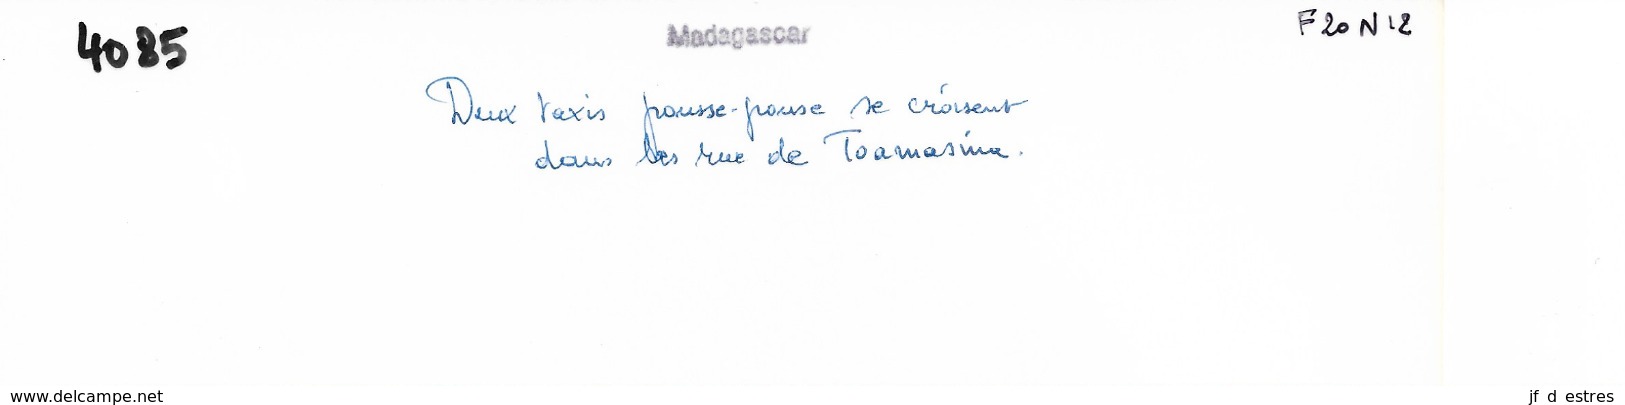 4085
Madagascar
F20 N12
Deux taxis pousse-pousse se croisent
dans les rue de Toamasina.
www.delcampe.net
jf d estres